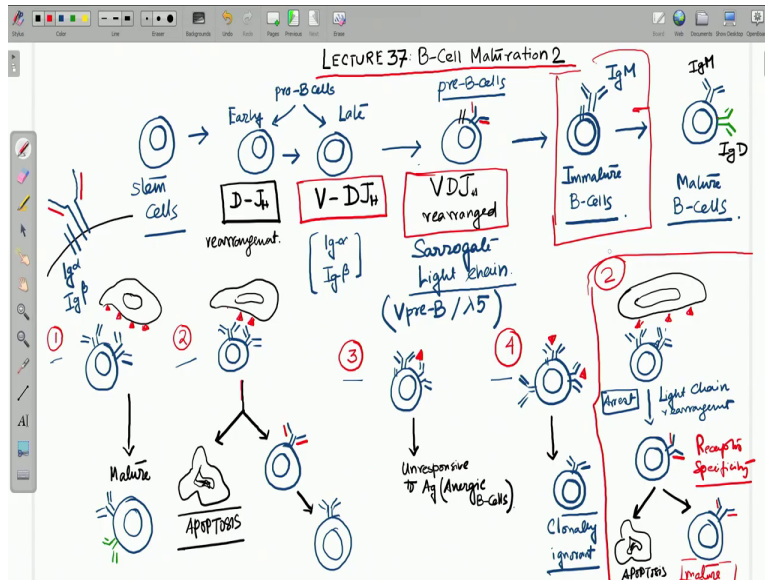 Stylus
Color
Line
Eraser
Backgrounds
Undo
Redo
Pages
Previous
Next
Erase
Board
Web
Documents
Show Desktop
OpenBoard
LECTURE 37: B-Cell Maturation 2
pro-B cells
Early
Late
pre-B-cells
IgM
IgM
IgD
stem
cells
D-JH
rearrangement.
V-DJH
VDJH
rearranged
Immature
B-cells.
Mature
B-cells.
Igα
Igβ
[Ig-α
Ig-β]
Sarrogate
Light chain.
(Vpre-B/λ5)
1
2
3
4
2
Mature
APOPTOSIS
Unresponsive
to Ag (Anergic
B-cells).
Clonally
ignorant
Arrest
Light Chain
rearrangement
Receptor
Specificity
APOPTOSIS
Mature